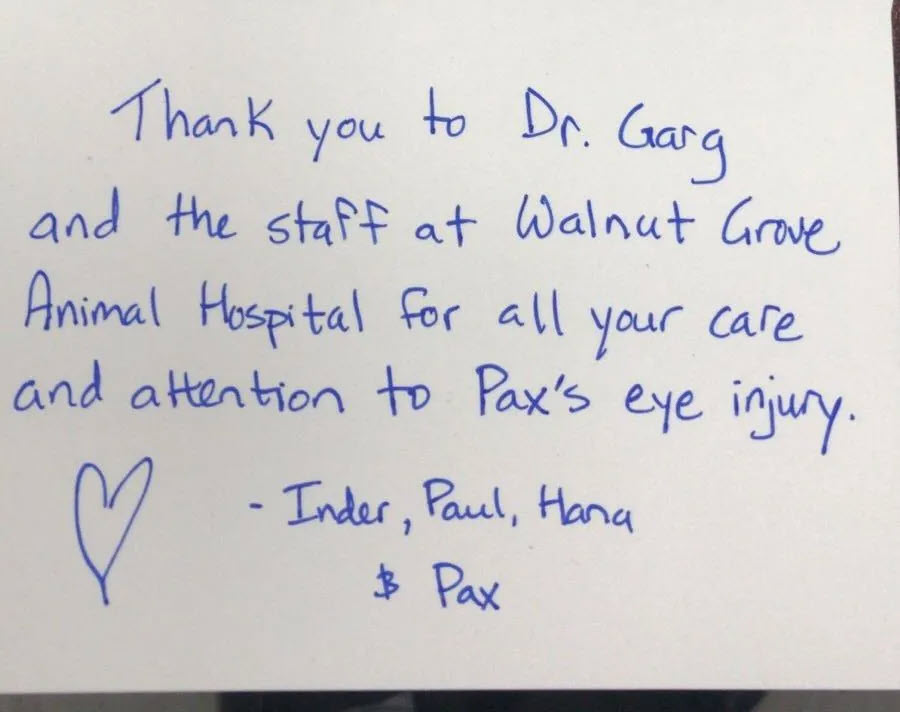 Thank you to Dr. Garg
and the staff at Walnut Grove
Animal Hospital for all your care
and attention to Pax's eye injury.
- Inder, Paul, Hana
& Pax